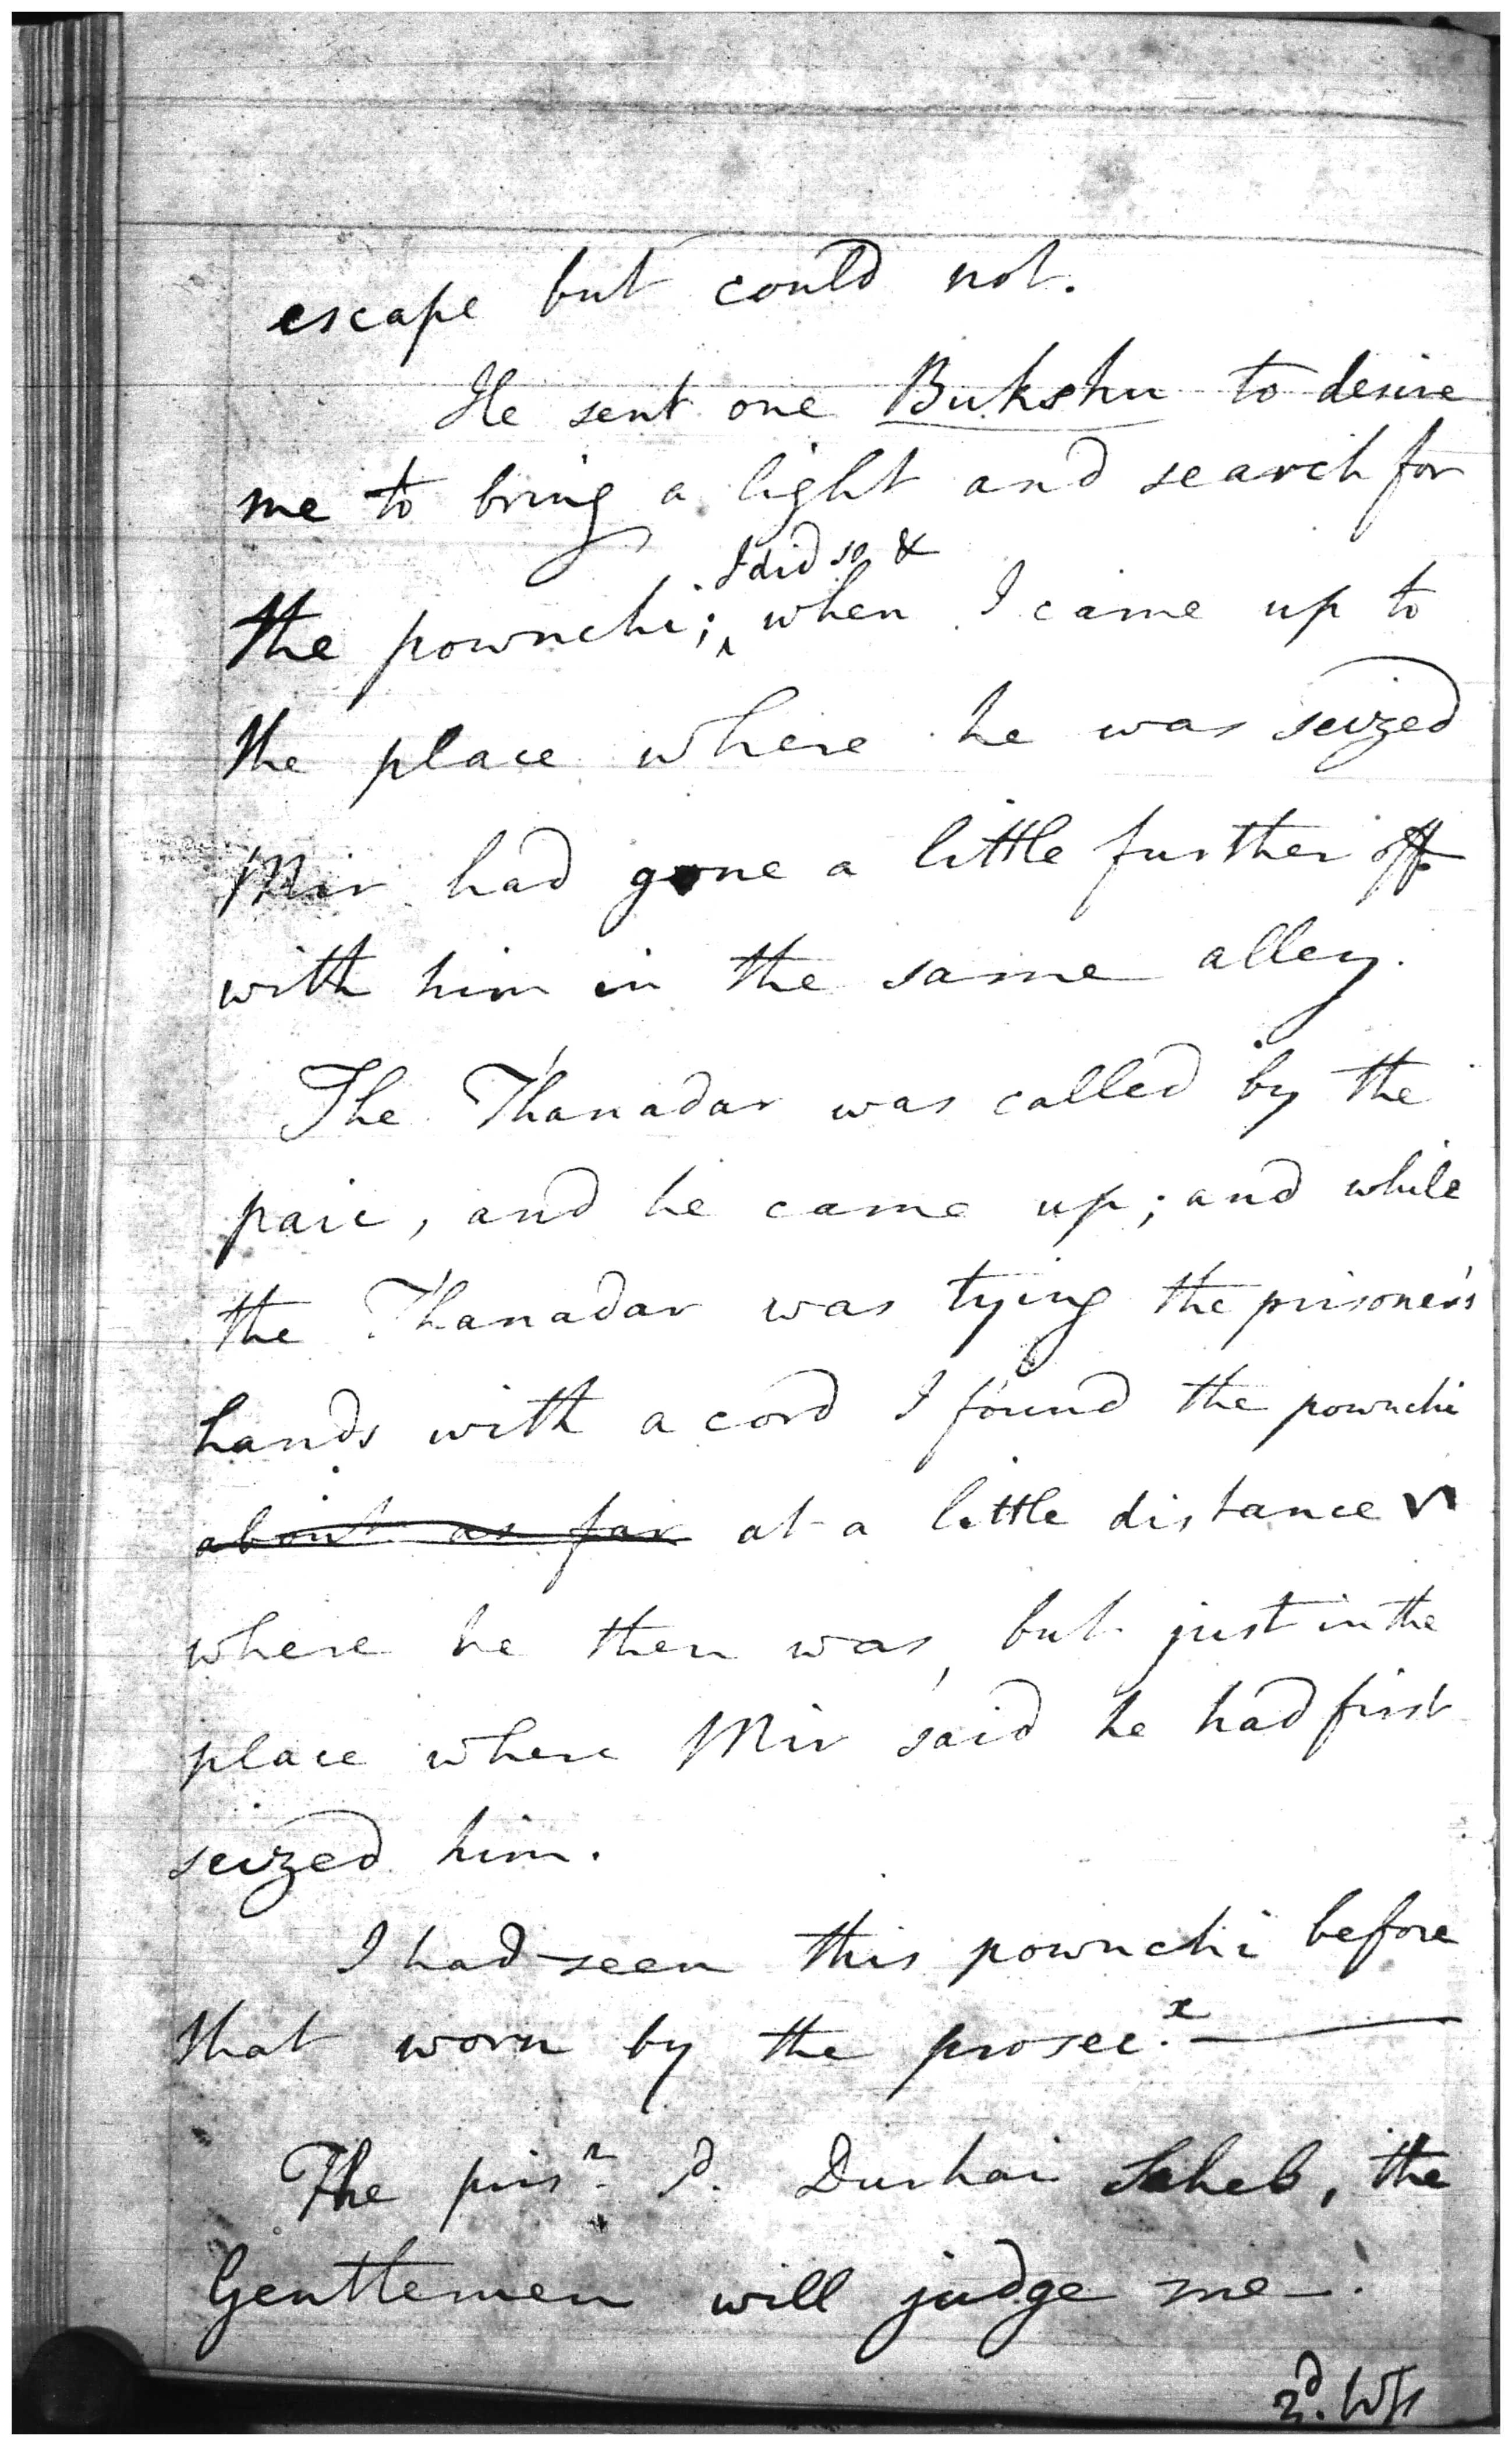 escape but could not.
He sent one Bukshu to desire
me to bring a light and search for
I did so &
the pownchi; when I came up to
the place where he was seized
Mir had gone a little further off
with him in the same alley.
The Thanadar was called by the
paic, and he came up; and while
the Thanadar was tying the prisoner's
hands with a cord I found the pownchi
about as far at a little distance
where he then was, but just in the
place where Mir said he had first
seized him.
I had seen this pownchi before
that worn by the prosec.x
The pris.r Durhai Saheb, the
Gentlemen will judge me.